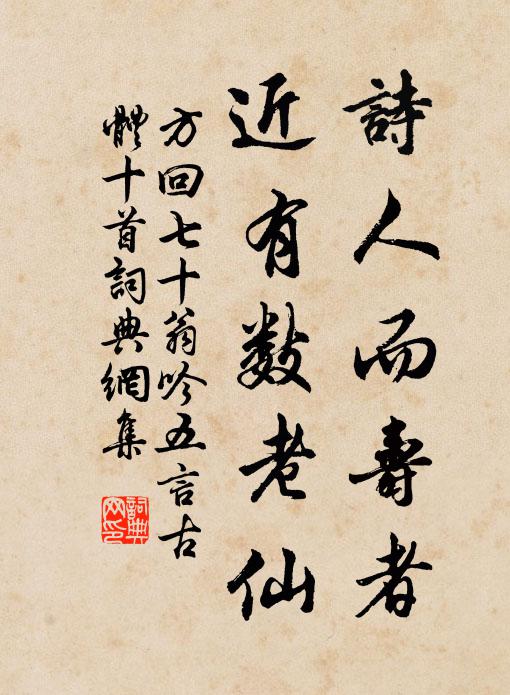 詩人而壽者
近有數老仙
方回七十翁吟五言古
體十首詞典網集
詞典
网印